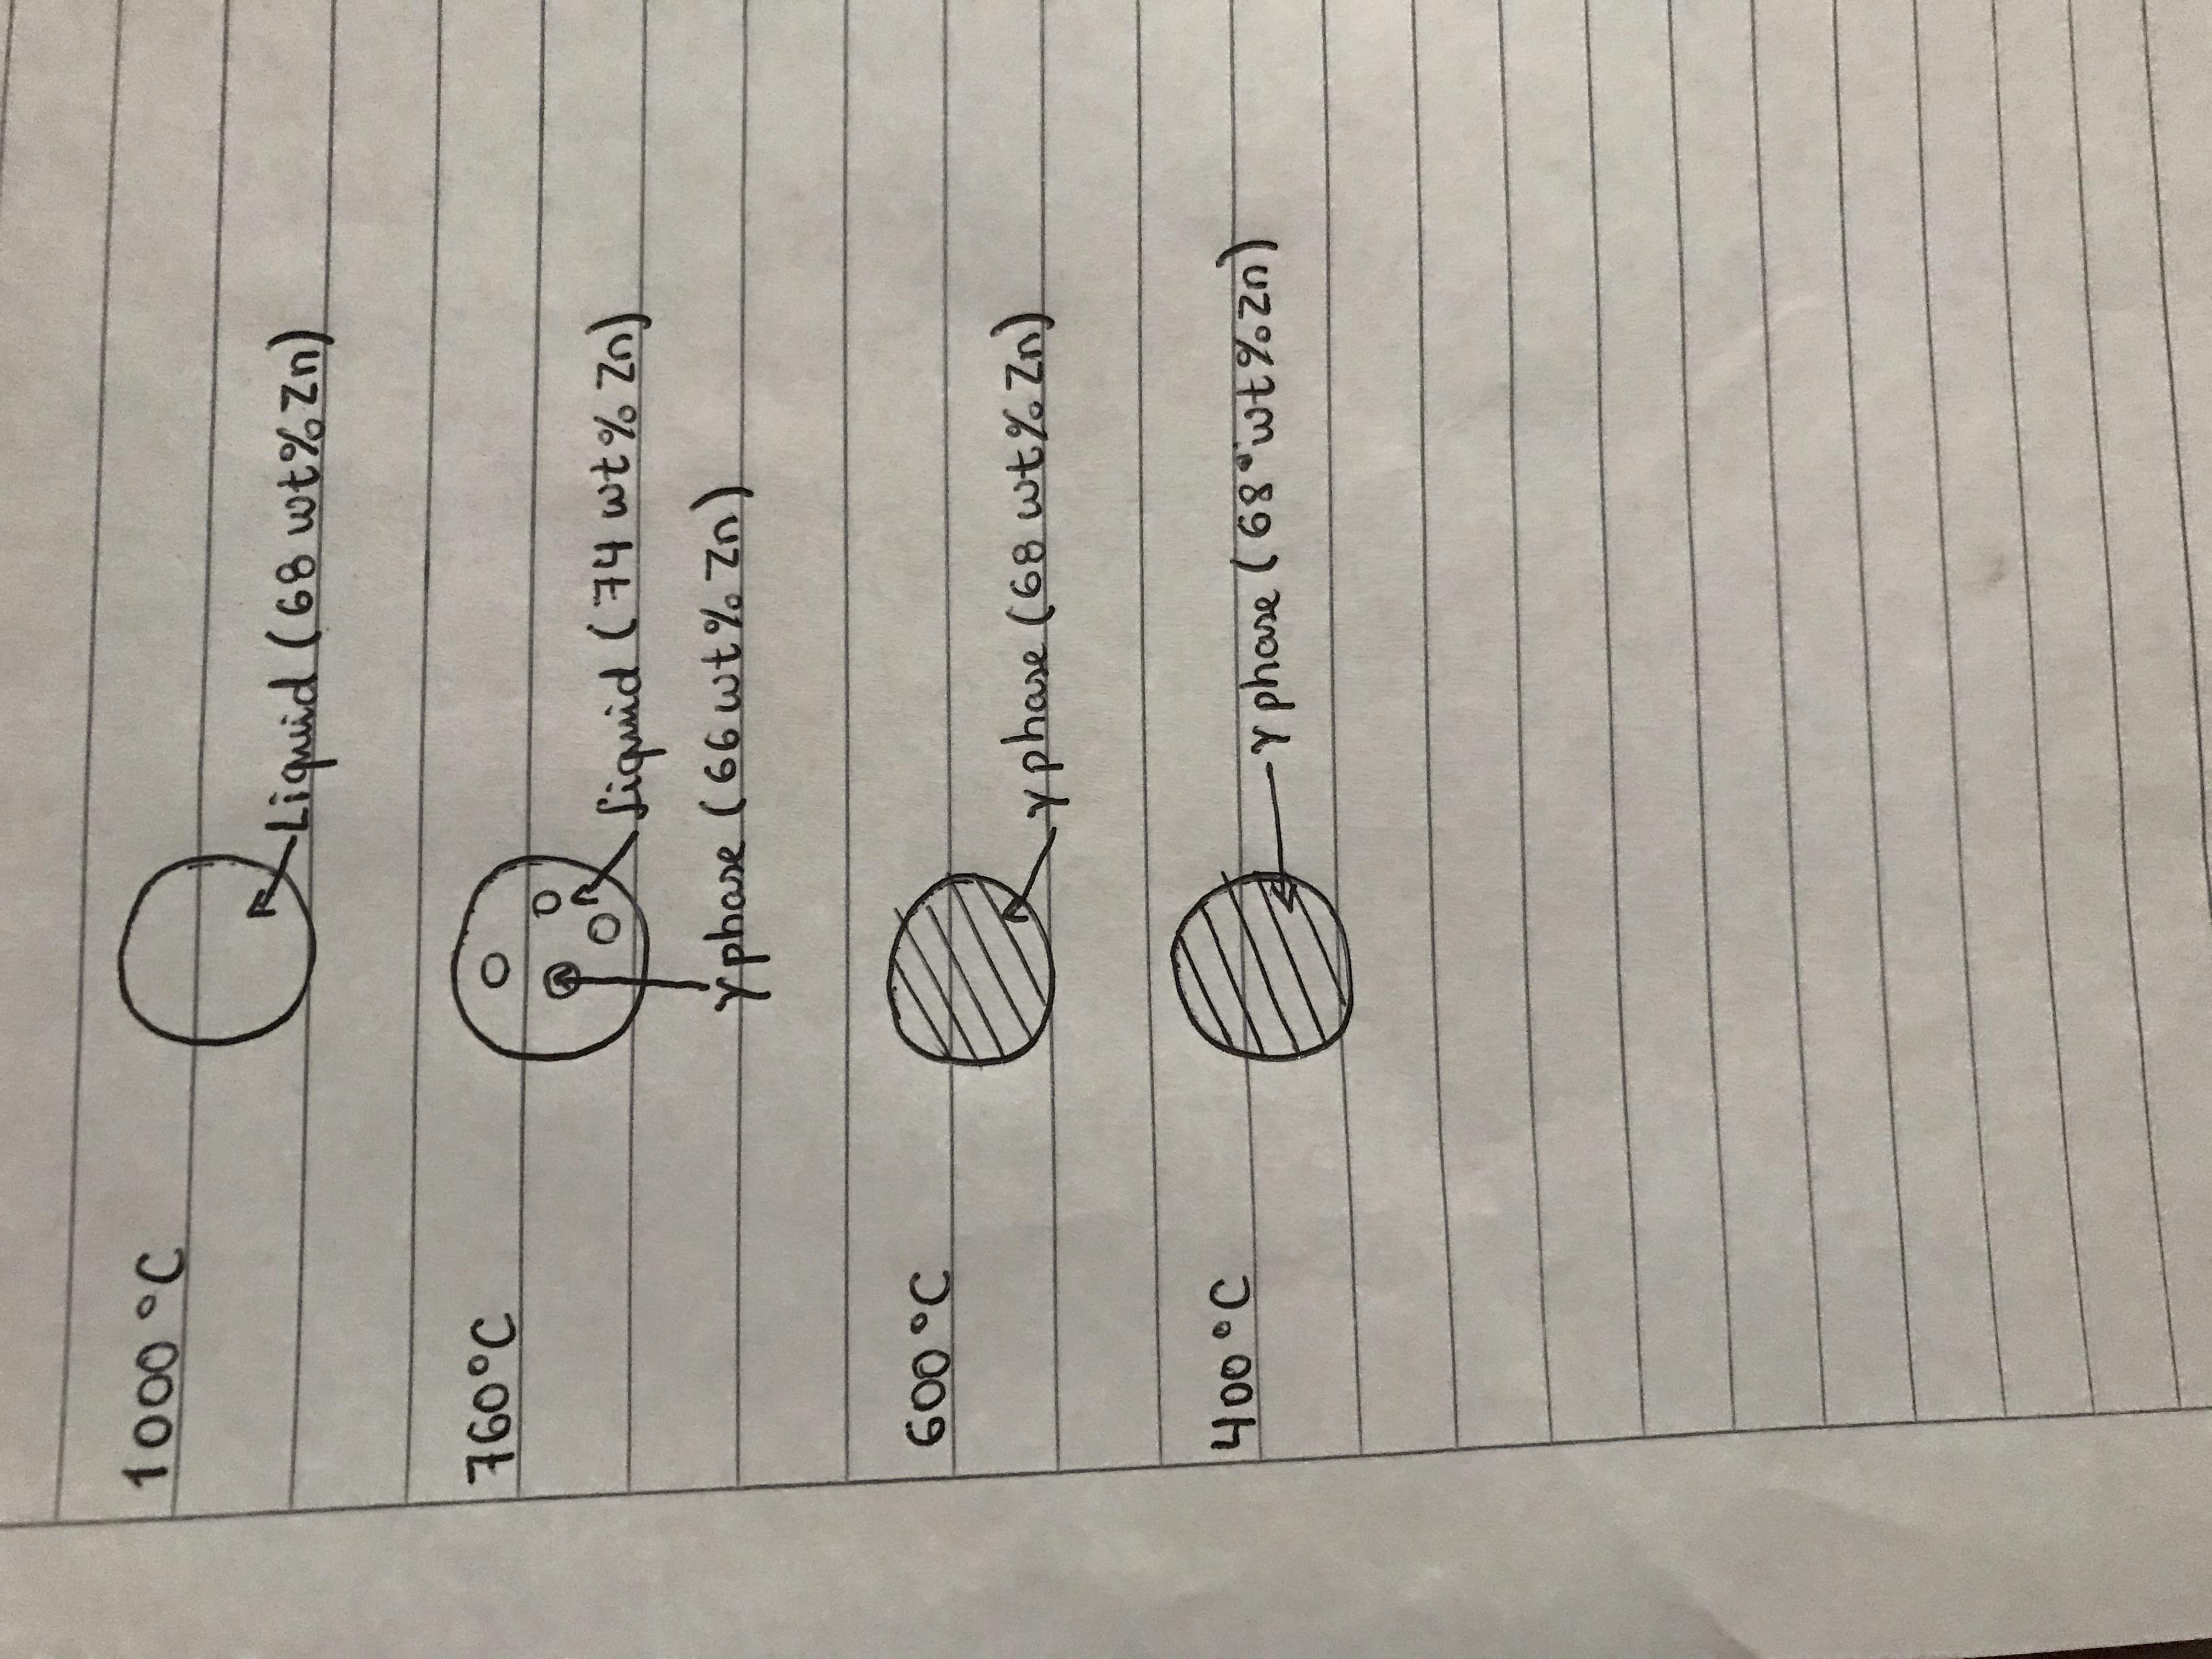 1000 °C
Liquid (68 wt% Zn)
760°C
Liquid (74 wt% Zn)
γ phase (66 wt% Zn)
600 °C
γ phase (68 wt% Zn)
400 °C
γ phase (68 wt% Zn)